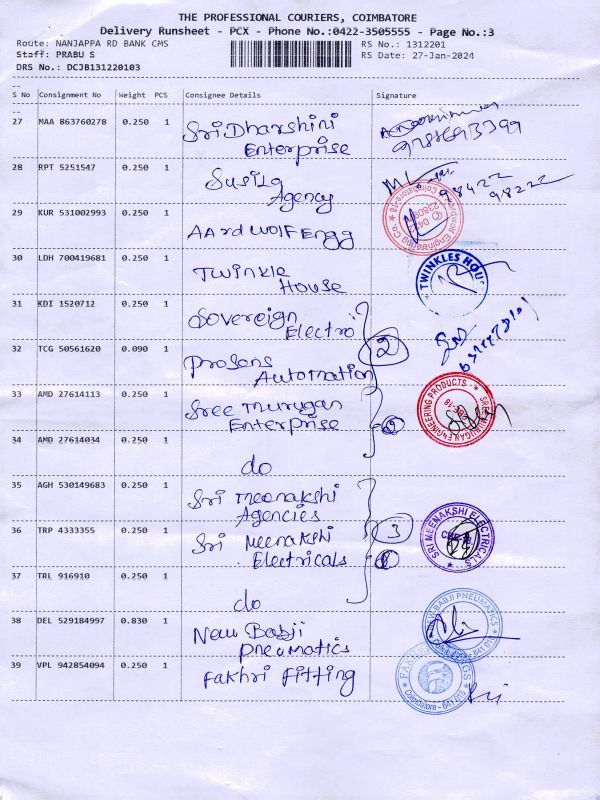 THE PROFESSIONAL COURIERS, COIMBATORE
Delivery Runsheet - PCX - Phone No.:0422-3505555 - Page No.:3
Route: NANJAPPA RD BANK CMS
RS No.: 1312201
Staff: PRABU S
RS Date: 27-Jan-2024
DRS No.: DCJB131220103
S No Consignment No Weight PCS Consignee Details Signature
27 MAA 863760278 0.250 1 Sri Dharshini
Enterprise
28 RPT 5251547 0.250 1 Susila
Agency
98422
98222
29 KUR 531002993 0.250 1 AArdwolf Engg
30 LDH 700419681 0.250 1 Twinkle
House
TWINKLES HOUSE
31 KDI 1520712 0.250 1 Sovereign
Electro
32 TCG 50561620 0.090 1 Prosons
Automation
2
33 AMD 27614113 0.250 1 Sree Murugan
Enterprise
SREE MURUGAN ENGINEERING PRODUCTS
34 AMD 27614034 0.250 1 do
35 AGH 530149683 0.250 1 Sri Meenakshi
Agencies
36 TRP 4333355 0.250 1 Sri Meenakshi
Electricals
3
SRI MEENAKSHI ELECTRICALS
37 TRL 916910 0.250 1 do
38 DEL 529184997 0.830 1 New Babji
Pneumatics
NEW BABJI PNEUMATICS
39 VPL 942854094 0.250 1 Fakhri Fitting
Coimbatore - 641 018